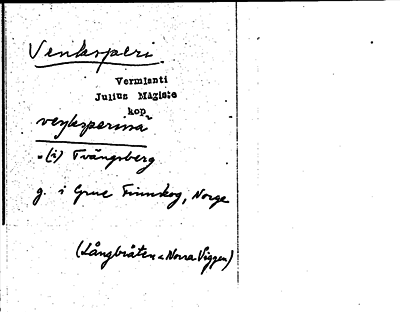 Venksperi
Vermlanti
Julius Mägiste
kop
venksperissä
"(i) Tvängsberg
g. i Grue Finnskog, Norge
(Långbråten a Norra Viggen)